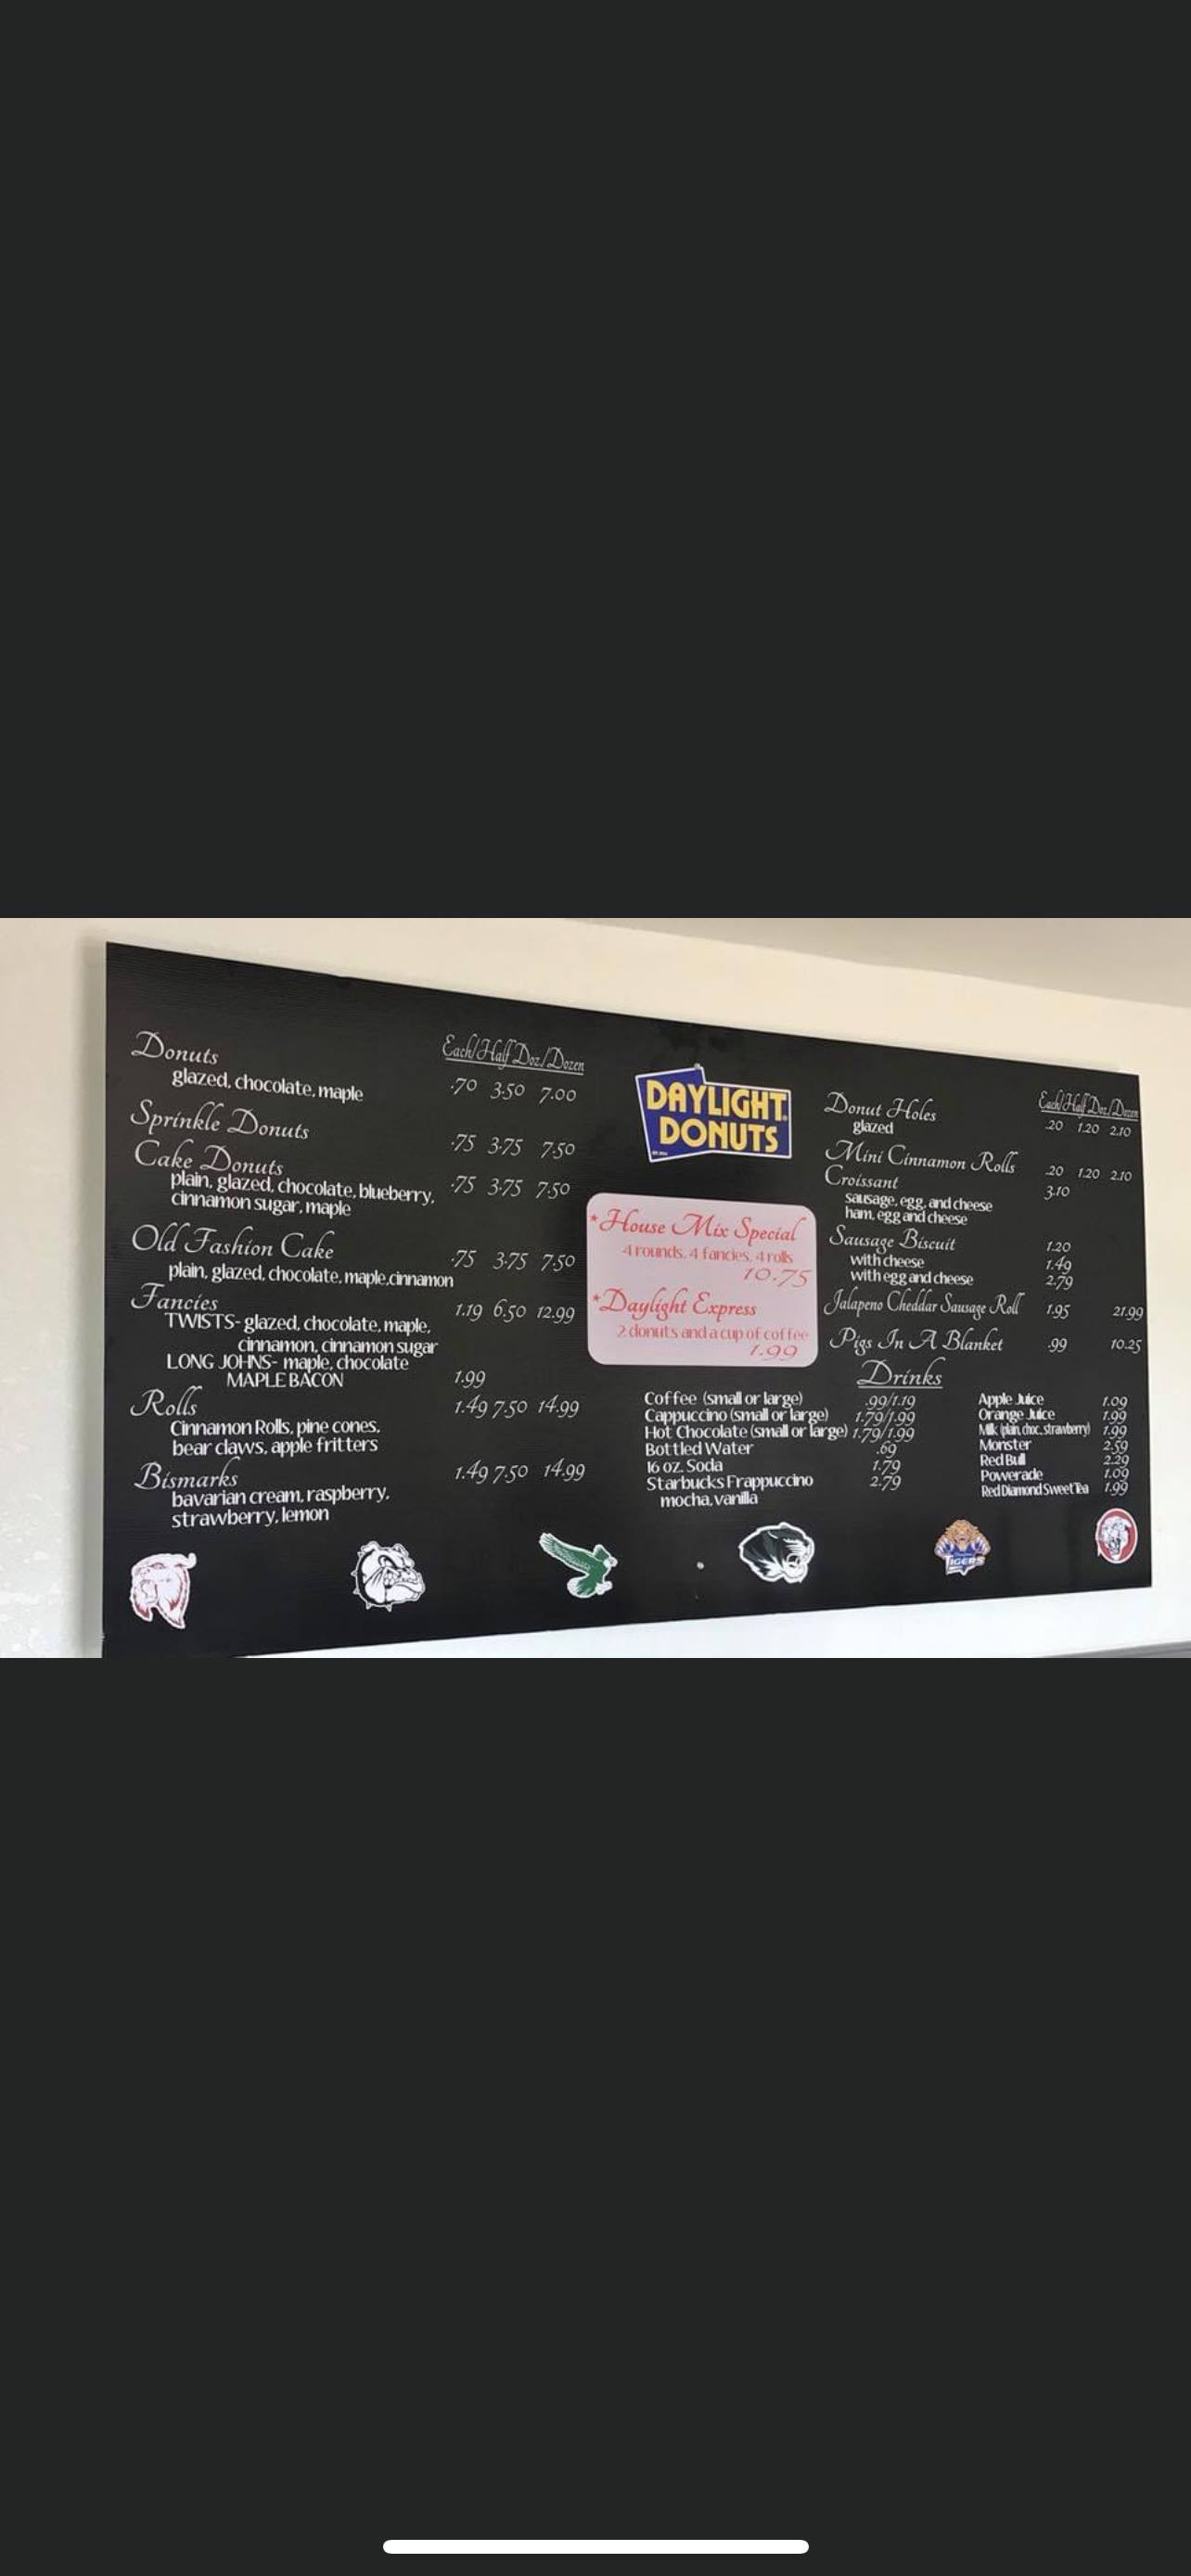 Donuts Each/Half Doz./Dozen
glazed, chocolate, maple .70 3.50 7.00
Sprinkle Donuts .75 3.75 7.50
Cake Donuts .75 3.75 7.50
plain, glazed, chocolate, blueberry,
cinnamon sugar, maple
Old Fashion Cake .75 3.75 7.50
plain, glazed, chocolate, maple,cinnamon
Fancies 1.19 6.50 12.99
TWISTS- glazed, chocolate, maple,
cinnamon, cinnamon sugar
LONG JOHNS- maple, chocolate
MAPLE BACON 1.99
Rolls 1.49 7.50 14.99
Cinnamon Rolls, pine cones,
bear claws, apple fritters
Bismarks 1.49 7.50 14.99
bavarian cream, raspberry,
strawberry, lemon
DAYLIGHT
DONUTS
*House Mix Special
4 rounds, 4 fancies, 4 rolls
10.75
*Daylight Express
2 donuts and a cup of coffee
1.99
Each/Half Doz./Dozen
Donut Holes
glazed .20 1.20 2.10
Mini Cinnamon Rolls .20 1.20 2.10
Croissant 3.10
sausage, egg, and cheese
ham, egg and cheese
Sausage Biscuit 1.20
with cheese 1.49
with egg and cheese 2.79
Jalapeno Cheddar Sausage Roll 1.95 21.99
Pigs In A Blanket .99 10.25
Drinks
Coffee (small or large) .99/1.19
Cappuccino (small or large) 1.79/1.99
Hot Chocolate (small or large) 1.79/1.99
Bottled Water .69
16 oz. Soda 1.79
Starbucks Frappuccino 2.79
mocha, vanilla
Apple Juice 1.09
Orange Juice 1.99
Milk (plain, choc., strawberry) 1.99
Monster 2.59
Red Bull 2.29
Powerade 1.09
Red Diamond Sweet Tea 1.99
TIGERS